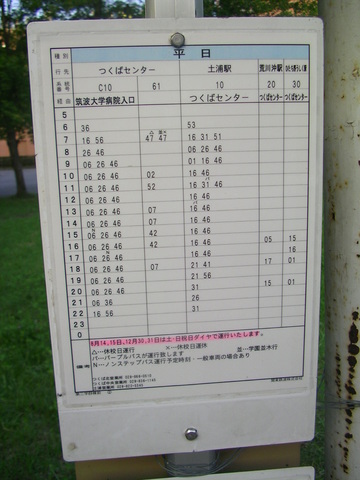 種別 平日
行先 つくばセンター 土浦駅 荒川沖駅 ひたち野うしく駅
系統番号 C10 61 10 20 30
経由 筑波大学病院入口 つくばセンター つくばセンター つくばセンター
5
6 36 53
7 16 56 47 47 16 31 51
8 26 46 06 26 46
9 06 26 46 01 16 46
10 06 26 46 02 16 46
11 06 26 46 52 16 31 46
12 06 26 46 16 46
13 06 26 46 07 16 46
14 06 26 46 07 16 46
15 06 26 46 42 16 46
16 06 26 46 42 16 46 05 15
17 06 26 46 16 46 16
18 06 26 46 07 21 41 17 01
19 06 26 46 21 56
20 06 26 46 31 15 01
21 06 36 26
22 16 56 31
23
0
8月14,15日、12月30,31日は土・日祝日ダイヤで運行いたします。
△…休校日運行 ×…休校日運休 並…学園並木行
パ…パープルバスが運行致します
N…ノンステップバス運行予定時刻・一般車両の場合あり